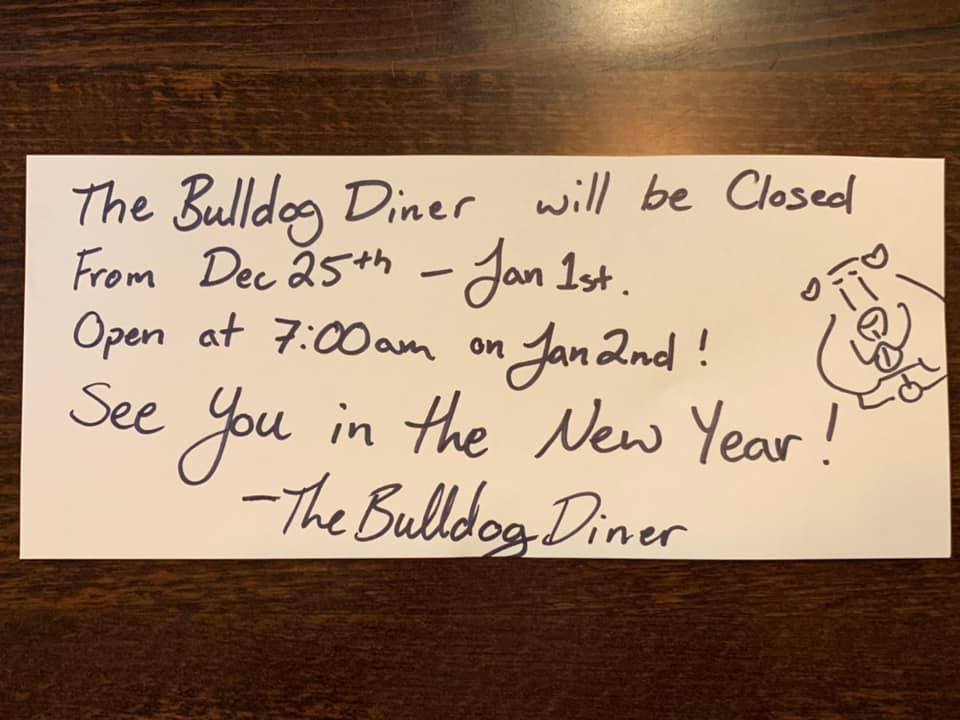 The Bulldog Diner will be Closed
From Dec 25th - Jan 1st.
Open at 7:00am on Jan 2nd!
See You in the New Year!
-The Bulldog Diner